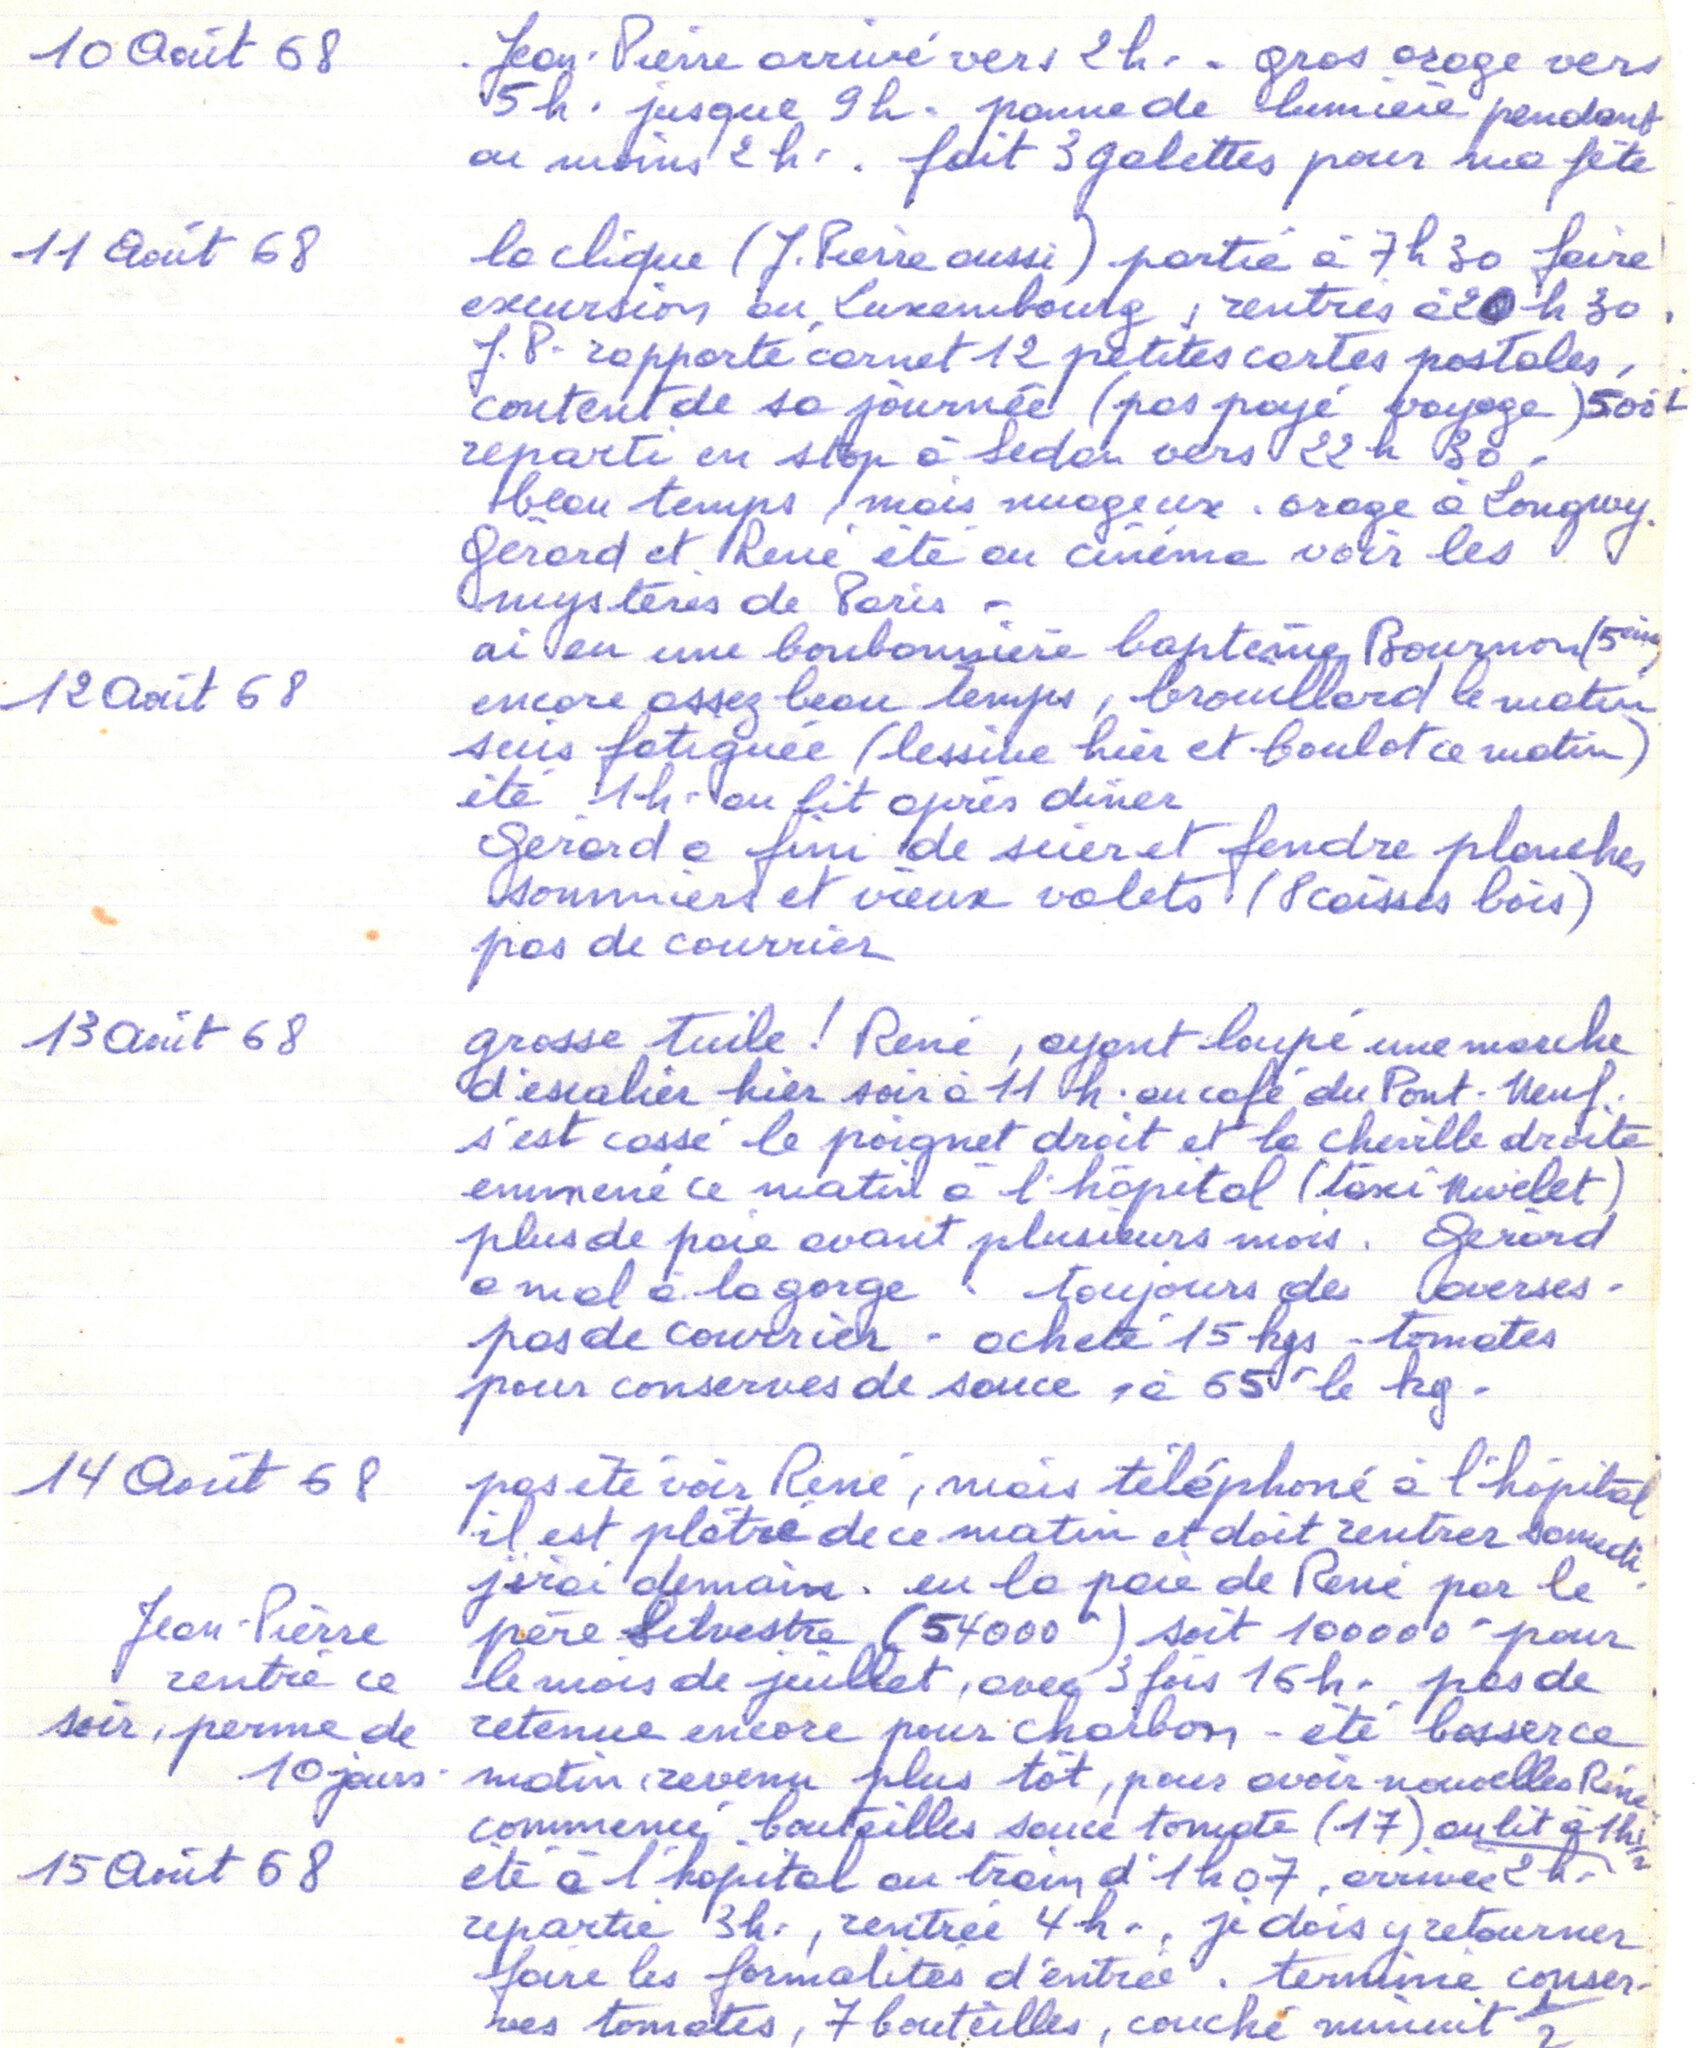 10 Août 68
. Jean-Pierre arrivé vers 2 h. . gros orage vers
5 h. jusque 9 h. panne de lumière pendant
au moins 2 h. . fait 3 galettes pour ma fête
11 Août 68
la clique (J. Pierre aussi) partie à 7 h 30 faire
excursion au Luxembourg, rentrés à 20 h 30.
J.P. rapporté carnet 12 petites cartes postales,
content de sa journée (pas payé voyage) 500
reparti en stop à Sedan vers 22 h 30.
beau temps, mais nuageux. orage à Longwy.
Gérard et René été au cinéma voir les
mystères de Paris -
ai eu une bonbonnière baptême Bournon (5ème)
12 Août 68
encore assez beau temps, brouillard le matin
suis fatiguée (lessive hier et boulot ce matin)
été 1 h. au lit après dîner
Gérard a fini de scier et fendre planches
sommiers et vieux volets (8 caisses bois)
pas de courrier
13 Août 68
grosse tuile ! René, ayant loupé une marche
d'escalier hier soir à 11 h. au café du Pont-Neuf.
s'est cassé le poignet droit et la cheville droite
emmené ce matin à l'hôpital (taxi Nivelet)
plus de paie avant plusieurs mois. Gérard
a mal à la gorge . toujours des averses.
pas de courrier - acheté 15 kgs - tomates
pour conserves de sauce, à 65 le kg.
14 Août 68
pas été voir René, mais téléphoné à l'hôpital
il est plâtré de ce matin et doit rentrer samedi.
j'irai demain. eu la paie de René par le
père Silvestre (54000) soit 100000 pour
le mois de juillet, avec 3 fois 16 h. pas de
retenue encore pour charbon - été bosser ce
matin, revenu plus tôt, pour avoir nouvelles René
commencé bouteilles sauce tomate (17) au lit à 1 h 1/2
Jean-Pierre
rentré ce
soir, perme de
10 jours.
15 Août 68
été à l'hôpital au train d'1 h 07, arrivée 2 h.
repartie 3 h., rentrée 4 h., je dois y retourner
faire les formalités d'entrée. terminé conser-
ves tomates, 7 bouteilles, couché minuit 1/2